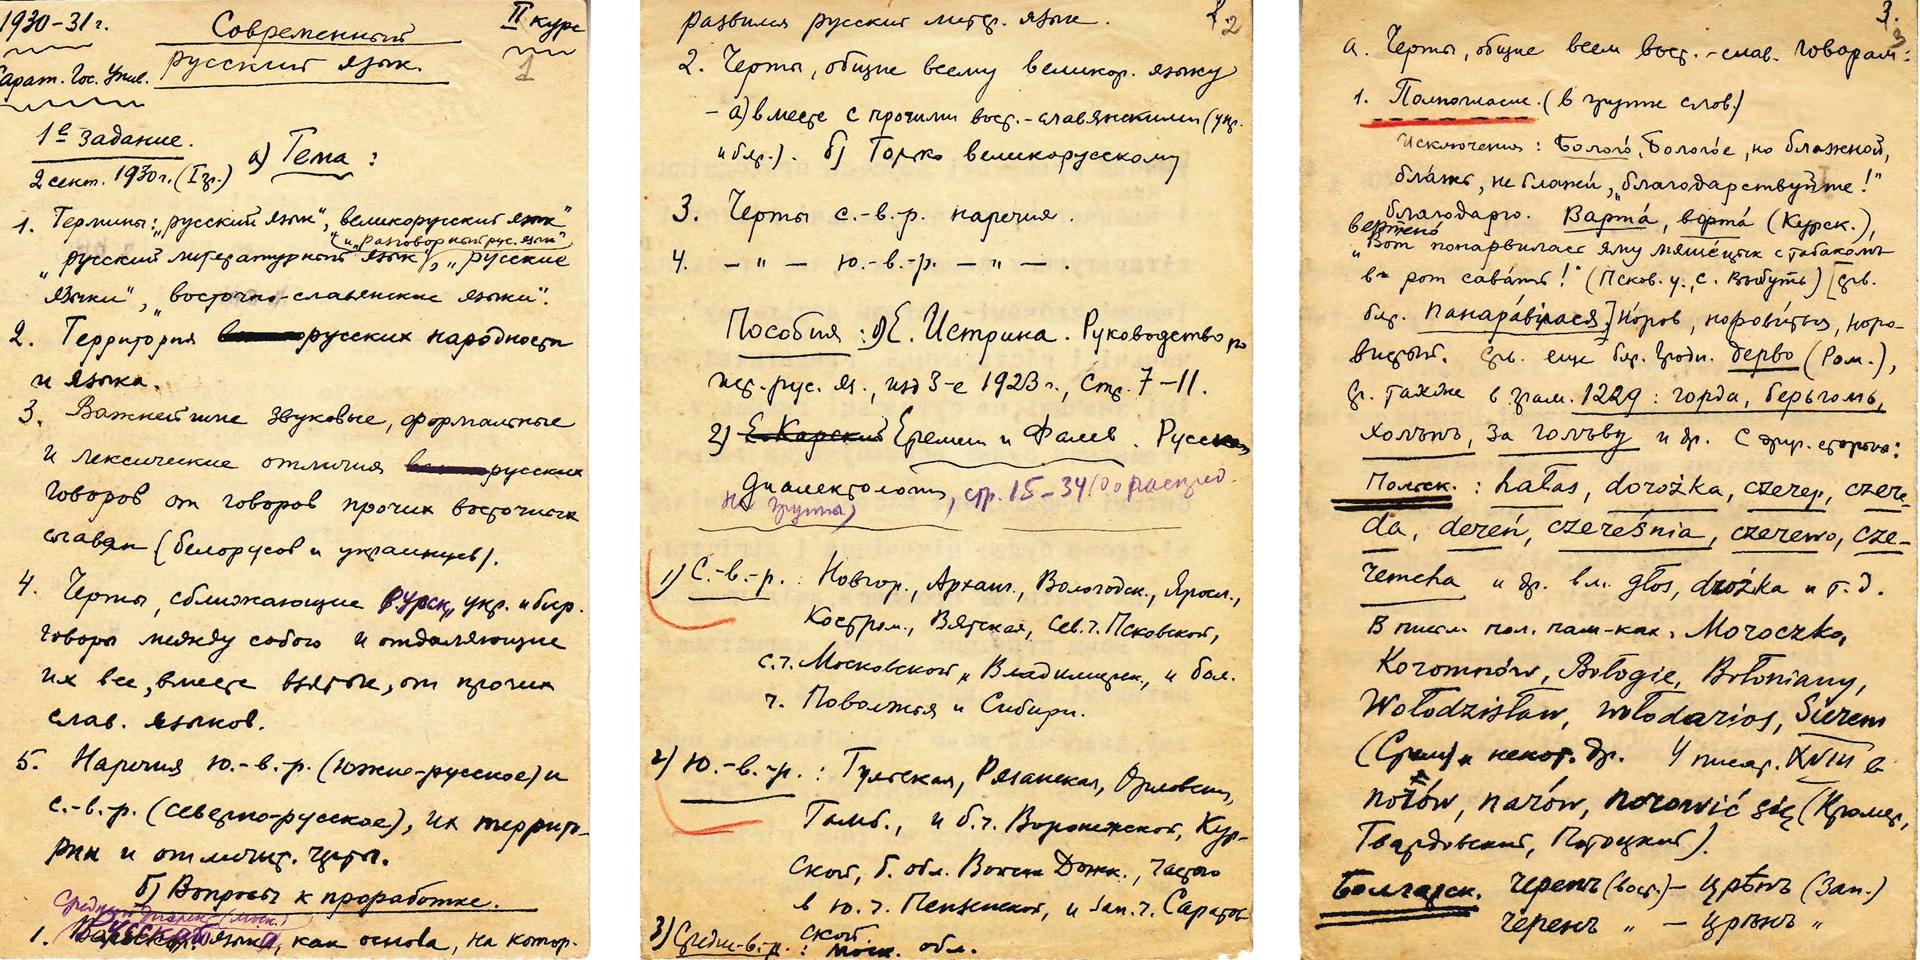 1930-31 г.
Современный
II курс
русский язык.
1
Сарат. Гос. Унив.
1е задание.
2 сент. 1930 г. (I гр.)
а) Тема:
1. Термины: „русский язык“, „великорусский язык“
(и „разговорный рус. язык“)
„русский литературный язык“, „русские
языки“, „восточно-славянские языки“.
2. Территория русских народности
и языка.
3. Важнейшие звуковые, формальные
и лексические отличия русских
говоров от говоров прочих восточных
славян (белорусов и украинцев).
4. Черты, сближающие русск., укр. и блр.
говоры между собою и отдаляющие
их все, вместе взятые, от прочих
слав. языков.
5. Наречия ю.-в.-р. (южно-русское) и
с.-в.-р. (северно-русское), их террито-
рии и отличит. черты.
б) Вопросы к проработке.
1. языка, как основа, на котор.
2
развился русский литер. язык.
2. Черты, общие всему великор. языку
- а) вместе с прочими вост.-славянскими (укр.
и блр.). б) Только великорусскому
3. Черты с.-в.-р. наречия.
4. — „ — ю.-в.-р. — „ — .
Пособия: 1) Е. Истрина. Руководство по
ист. рус. яз., изд 3-е 1923 г., стр. 7-11.
2) Е. Карский Еремин и Фалев. Русская
диалектология, стр. 15-34 (до распред.
на группы)
1) С.-в.-р.: Новгор., Арханг., Вологодск., Яросл.,
Костром., Вятская, сев. ч. Псковской,
с. ч. Московской и Владимирск., и бол.
ч. Поволжья и Сибири.
2) Ю.-в.-р.: Тульская, Рязанская, Орловская,
Тамб., и б. ч. Воронежской, Кур-
ской, б. обл. Войска Донск., часть
в ю. ч. Пензенской, и зап. ч. Саратов-
ской.
3) Средне-в.-р.: Моск. обл.
3.
а. Черты, общие всем вост.-слав. говорам:
1. Полногласие. (в группе слов)
Исключения: Болого, Бологое, но блажной,
блажь, не блажи, „благодарствуйте!“
благодарю. Варта, ворта (Курск.),
вертено
„Вот понарвилась яму мяшецык с табаком
в рот савать!“ (Псков. у., с. Выбуть) [срв.
блр. панаравілася] норов, норовиться, норо-
вистый. Срв. еще блр. дерво (Ром.),
ср. также в грам. 1229: горда, берьгомь,
холъпъ, за голъву и др. С друг. стороны:
Польск.: hałas, dorożka, czerep, czere-
da, dereń, czereśnia, czerewo, cze-
remcha и др. вм. głos, dróżka и т. д.
В письм. пол. пам-ках: Moroczko,
Koromnów, Bołogie, Bołoniany,
Wołodzisław, Wołodarios, Sierem
(Срем) и некот. др. У писат. XVIII в
norów, narów, norowić się (Кромер,
Твардовский, Потоцкий).
Болгарск. черенъ (вост.) — црѣнъ (зап.)
черенъ „ — црѣнъ „